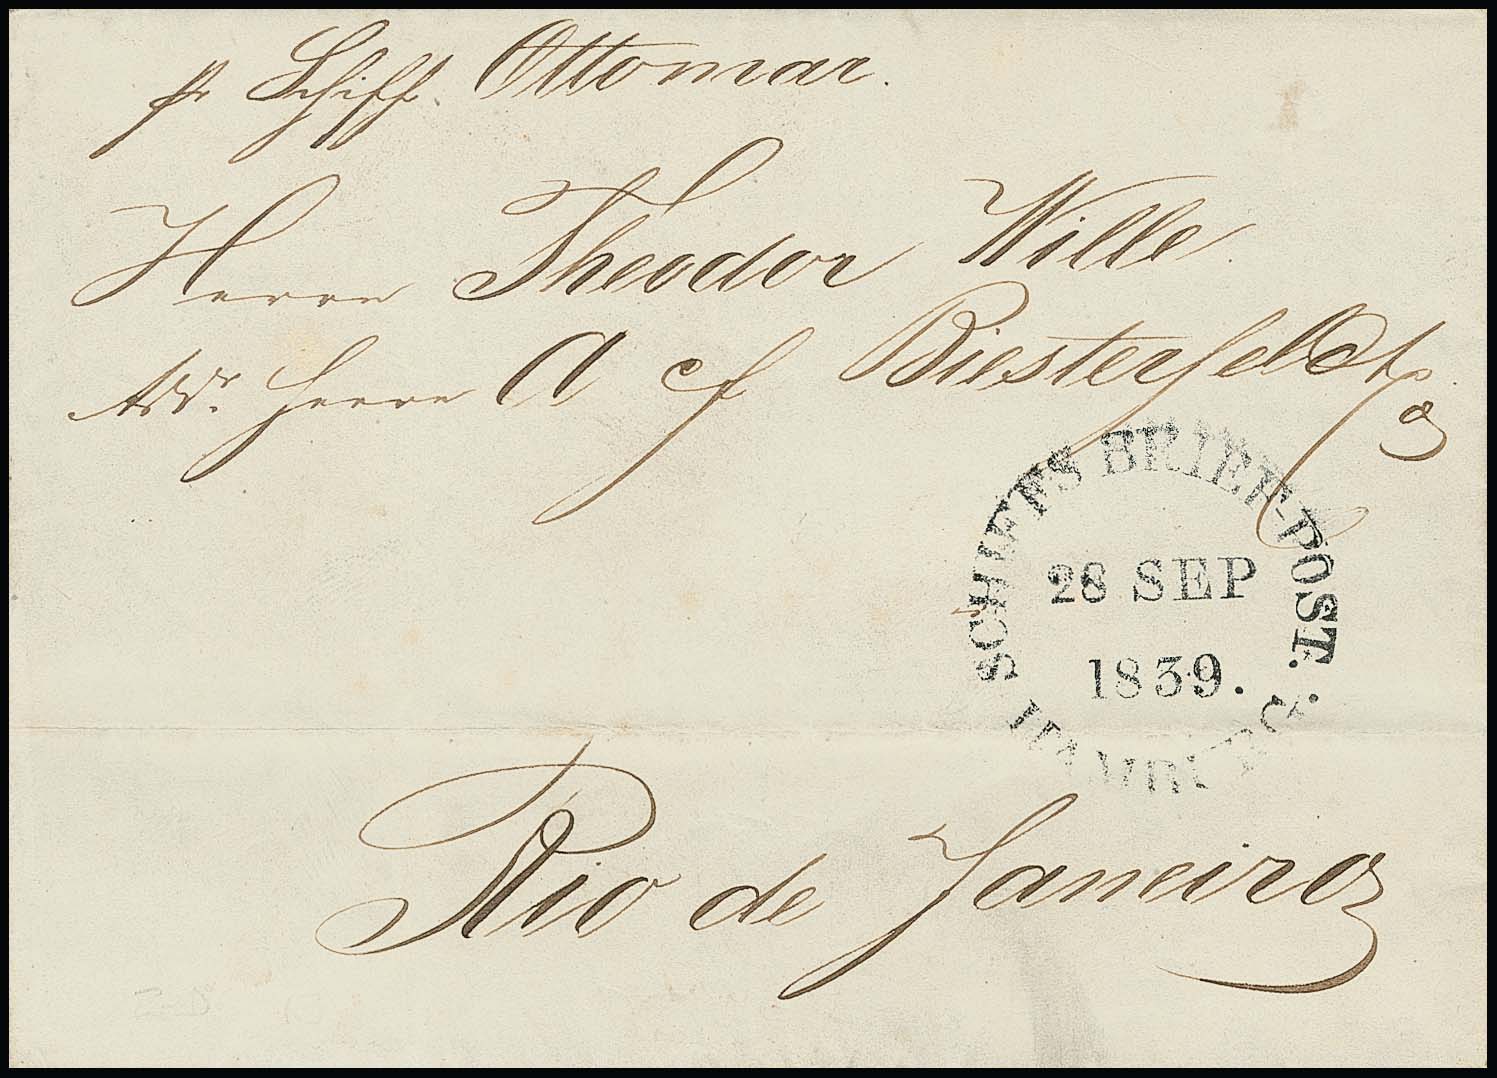 pr Schiff. Ottomar.
Herrn Theodor Wille.
Adr. Herrn A F Biesterfeldt
SCHIFFS BRIEF-POST.
28 SEP
1839.
HAMBURG.
Rio de Janeiro